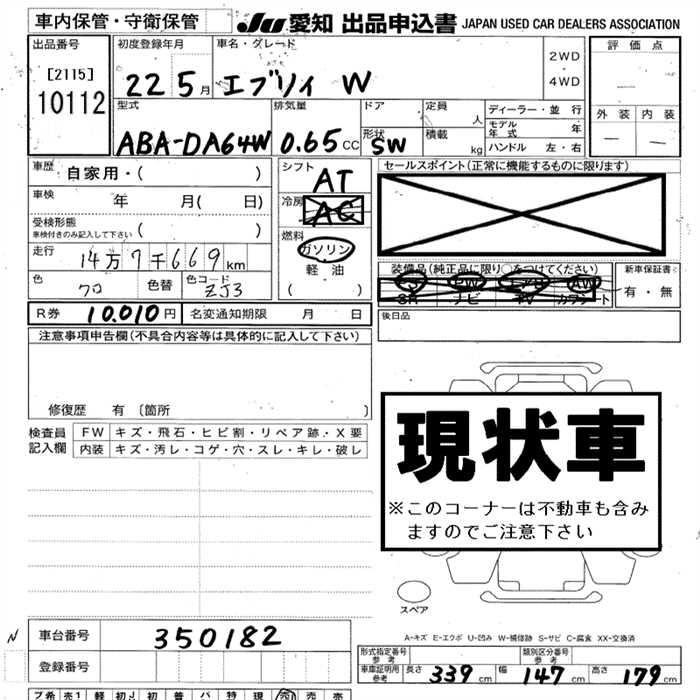 車内保管・守衛保管 JU 愛知 出品申込書 JAPAN USED CAR DEALERS ASSOCIATION
出品番号 初度登録年月 車名・グレード 評価点
[2115] 22 5月 エブリィ W 2WD
10112 4WD
型式 排気量 ドア 定員 人 ディーラー・並行 外装 内装
モデル年式 年
ABA-DA64W 0.65CC 形状 SW 積載 kg ハンドル 左・右
車歴 自家用・( ) シフト AT セールスポイント(正常に機能するものに限ります)
車検 年 月( 日) 冷房 AC
受検形態 ( ) 燃料
車検付きのみ記入して下さい ガソリン
走行 14万7千669km 軽油 装備品(純正品に限り○をつけてください) 新車保証書
色 クロ 色替 色コード ZJ3 ( ) PS PW AW 有・無
SR ナビ TV カワシート
R券 10,010円 名変通知期限 月 日 後日品
注意事項申告欄(不具合内容等は具体的に記入して下さい)
修復歴 有 〔箇所 〕
現状車
※このコーナーは不動車も含み
ますのでご注意下さい
検査員 FW キズ・飛石・ヒビ割・リペア跡・X要
記入欄 内装 キズ・汚レ・コゲ・穴・スレ・キレ・破レ
スペア
A-キズ E-エクボ U-凹み W-補修跡 S-サビ C-腐食 XX-交換済
車台番号 350182
形式指定番号 参考 類別区分番号 参考
登録番号 車庫証明用 参考 長さ 339cm 幅 147cm 高さ 179cm